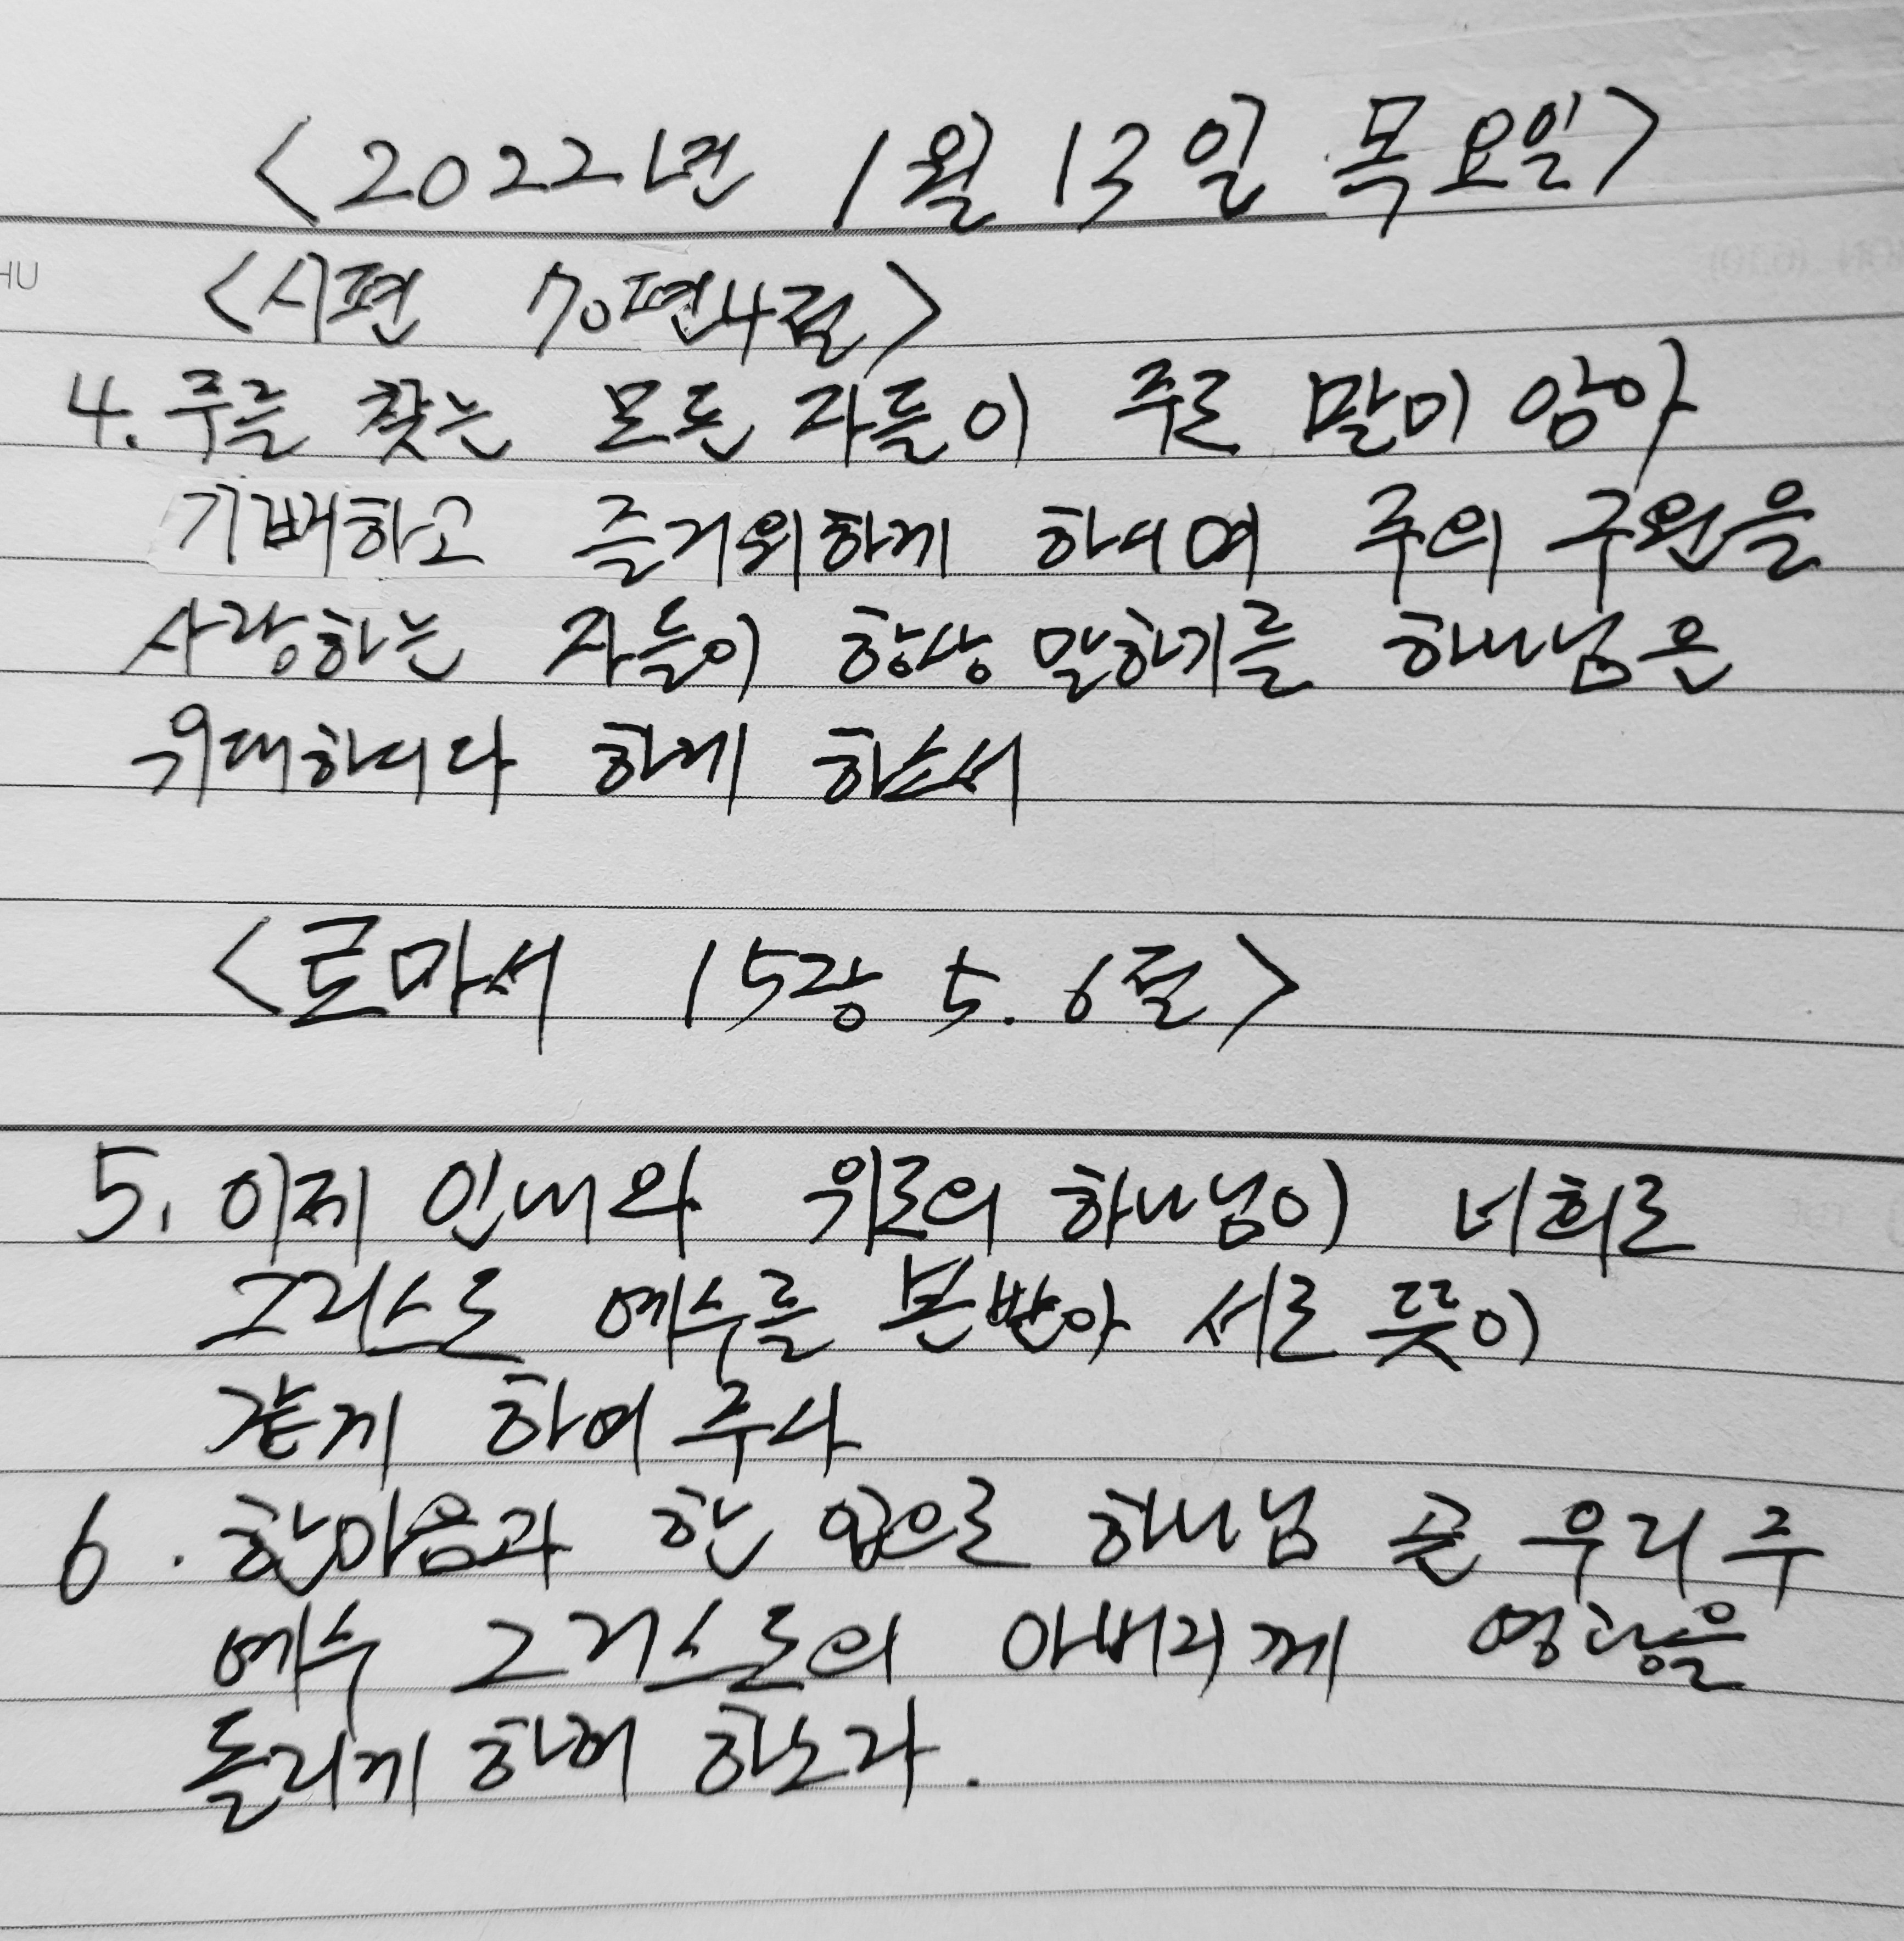 <2022년 1월 13일 목요일>
HU
<시편 70편4절>
4. 주를 찾는 모든 자들이 주로 말미 암아
기뻐하고 즐거워하게 하시며 주의 구원을
사랑하는 자들이 항상 말하기를 하나님은
위대하시다 하게 하소서
<로마서 15장 5. 6절>
5. 이제 인내와 위로의 하나님이 너희로
그리스도 예수를 본받아 서로 뜻이
같게 하여 주사
6. 한마음과 한 입으로 하나님 곧 우리 주
예수 그리스도의 아버지께 영광을
돌리게 하여 하노라.